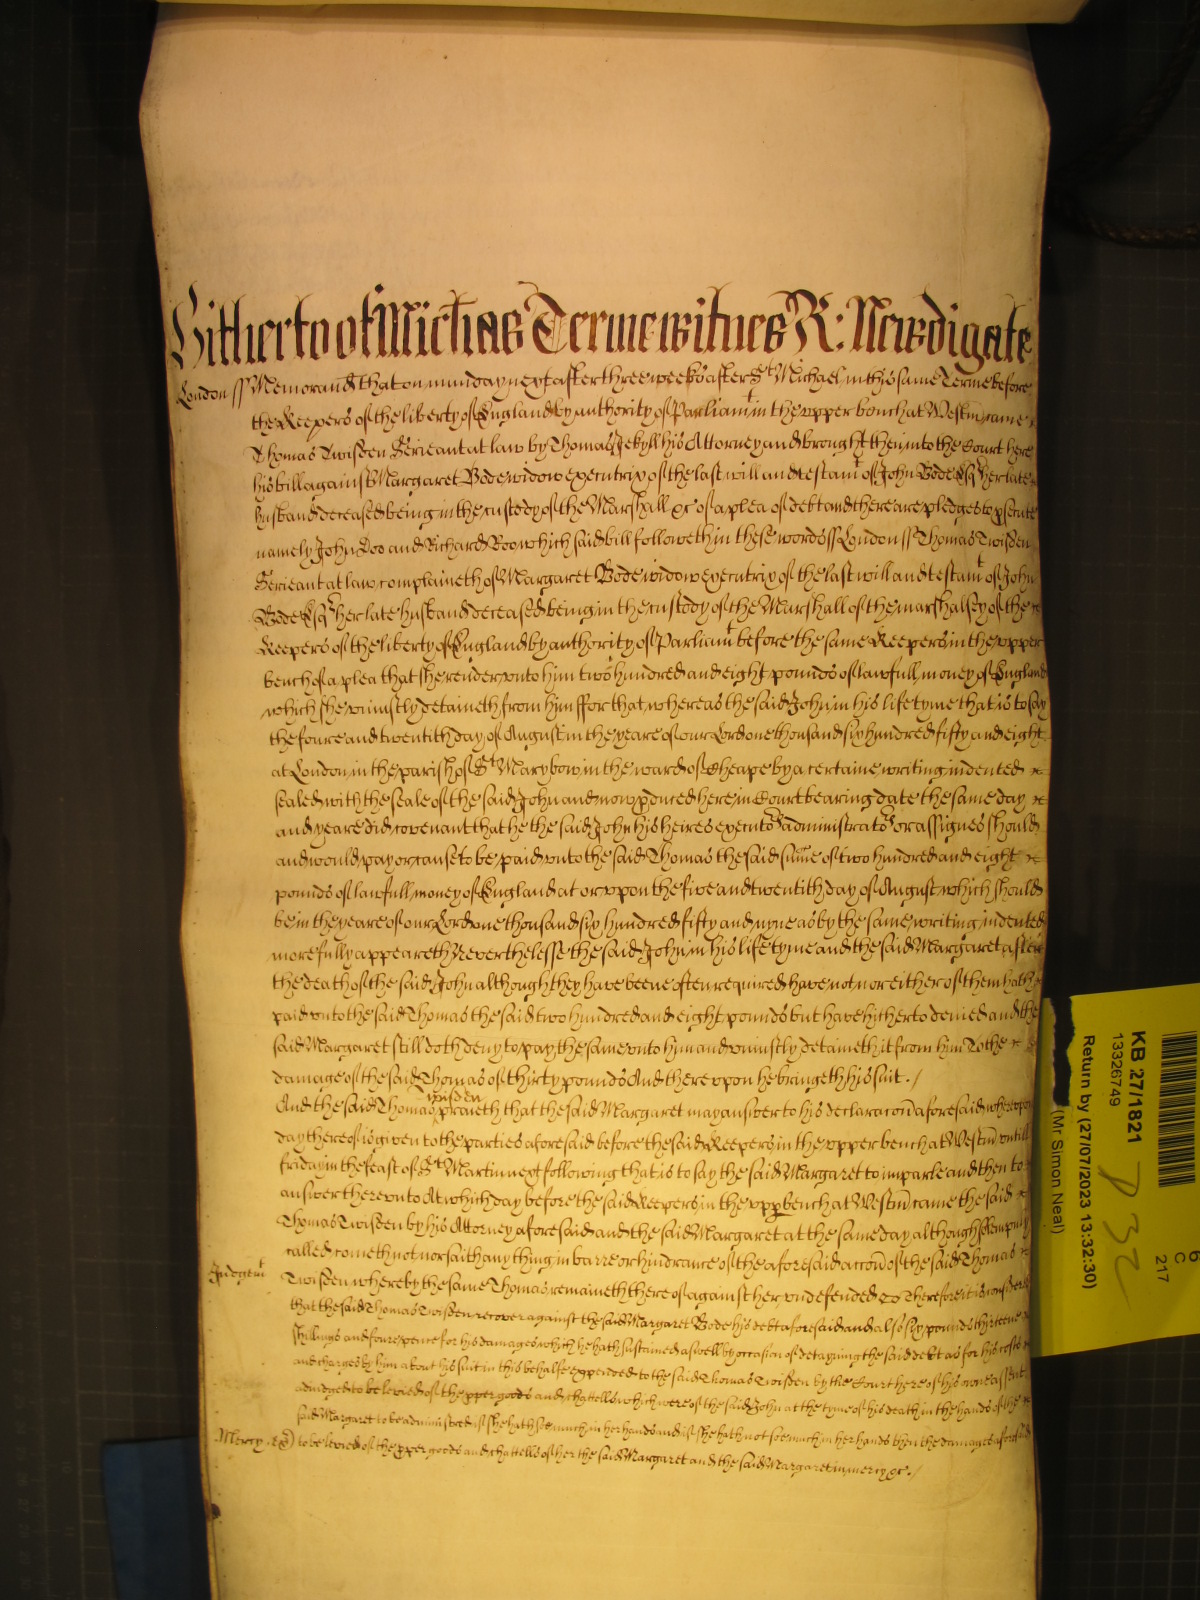 Hitherto of Michas Terme witnes R: Newdigate
London ss Memorand that on munday next after three weeks after St Michael in this same Terme before
the Keepers of the liberty of England by authority of Parliamt in the upper bench at Westm came
Thomas Twisden Serieant at law by Thomas Jekyll his Attorney and brought then into the Court here
his bill against Margaret Bode widow executrix of the last will and testamt of John Bode Esqr her late
husband deceased being in the custody of the Marshall &c of a plea of debt and there are pledges to psecute
namely John Doo and Richard Roo which said bill followeth in these words ss London ss Thomas Twisden
Serieant at law complaineth of Margaret Bode widow executrix of the last will and testamt of John
Bode Esqr her late husband deceased being in the custody of the Marshall of the marshalsey of the
Keepers of the liberty of England by authority of Parliamt before the same Keepers in the upper
bench of a plea that she render unto him two hundred and eight pounds of lawfull money of England
which she uniustly detaineth from him ffor that whereas the said John in his life tyme that is to say
the foure and twentith day of August in the yeare of our Lord one thousand six hundred fifty and eight
at London in the parish of St Mary bow in the ward of Cheape by a certaine writing indented
sealed with the seale of the said John and now pduced here in Court bearing date the same day
and yeare did covenant that he the said John his heires executors administrators or assignes should
and would pay or cause to be paid unto the said Thomas the said sume of two hundred and eight
pounds of lawfull money of England at or upon the five and twentith day of August which should
be in the yeare of our Lord one thousand six hundred fifty and nyne as by the same writing indented
more fully appeareth Neverthelesse the said John in his life tyme and the said Margaret after
the death of the said John although they have beene often required have not nor either of them hath
paid unto the said Thomas the said two hundred and eight pounds but have hitherto denied and the
said Margaret still doth deny to pay the same unto him and uniustly detaineth it from him To the
damage of the said Thomas of thirty pounds And thereupon he bringeth his suit ./
And the said Thomas Twisden praieth that the said Margaret may answer to his declaracon aforesaid whereupon
day thereof is given to the parties aforesaid before the said Keepers in the upper bench at Westm untill
friday in the feast of St Martin next following that is to say the said Margaret to imparle and then to
answer thereunto At which day before the said Keepers in the upp bench at Westm came the said
Thomas Twisden by his Attorney aforesaid and the said Margaret at the same day although solempnly
called cometh not nor saith any thing in barre or hindrance of the aforesaid accon of the said Thomas
Judgemt Twisden whereby the same Thomas remaineth thereof against her undefended Therefore it is considered
that the said Thomas Twisden recover against the said Margaret Bode his debt aforesaid and also six pounds thirteene
shillings and foure pence for his damages which he hath sustained aswell by occasion of detayning the said debt as for his costs
and charges by him about his suit in this behalfe expended to the said Thomas Twisden by the Court here of his owne assent
adiudged to be levied of the pper goods and chattells which were of the said John at the tyme of his death in the hands of the
said Margaret to be administred if she hath soe much in her hands and if she hath not soe much in her hands then the damages aforesaid
Mercy to be levied of the pper goods and chattells of her the said Margaret and the said Margaret in mercy &c ./
KB 27/1821
13326749
Return by (27/07/2023 13:32:30)
(Mr. Simon Neal)
C
217
P 32